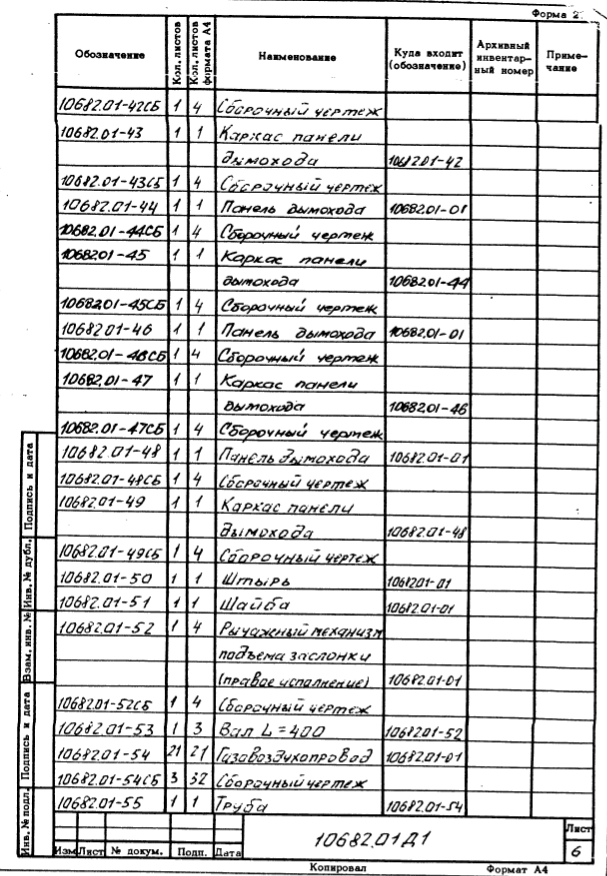 Форма 2
Обозначение | Кол. листов | Кол. листов формата А4 | Наименование | Куда входит (обозначение) | Архивный инвентарный номер | Примечание
10682.01-42СБ 1 4 Сборочный чертеж
10682.01-43 1 1 Каркас панели
дымохода 10682.01-42
10682.01-43СБ 1 4 Сборочный чертеж
10682.01-44 1 1 Панель дымохода 10682.01-01
10682.01-44СБ 1 4 Сборочный чертеж
10682.01-45 1 1 Каркас панели
дымохода 10682.01-44
10682.01-45СБ 1 4 Сборочный чертеж
10682.01-46 1 1 Панель дымохода 10682.01-01
10682.01-46СБ 1 4 Сборочный чертеж
10682.01-47 1 1 Каркас панели
дымохода 10682.01-46
10682.01-47СБ 1 4 Сборочный чертеж
10682.01-48 1 1 Панель дымохода 10682.01-01
10682.01-48СБ 1 4 Сборочный чертеж
10682.01-49 1 1 Каркас панели
дымохода 10682.01-48
10682.01-49СБ 1 4 Сборочный чертеж
10682.01-50 1 1 Штырь 10682.01-01
10682.01-51 1 1 Шайба 10682.01-01
10682.01-52 1 4 Рычажный механизм
подъема заслонки
(правое исполнение) 10682.01-01
10682.01-52СБ 1 4 Сборочный чертеж
10682.01-53 1 3 Вал L=400 10682.01-52
10682.01-54 21 21 Газовоздухопровод 10682.01-01
10682.01-54СБ 3 32 Сборочный чертеж
10682.01-55 1 1 Труба 10682.01-54
Инв. № подл. Подпись и дата Взам. инв. № Инв. № дубл. Подпись и дата
10682.01Д1
Лист
6
Изм Лист № докум. Подп. Дата
Копировал Формат А4